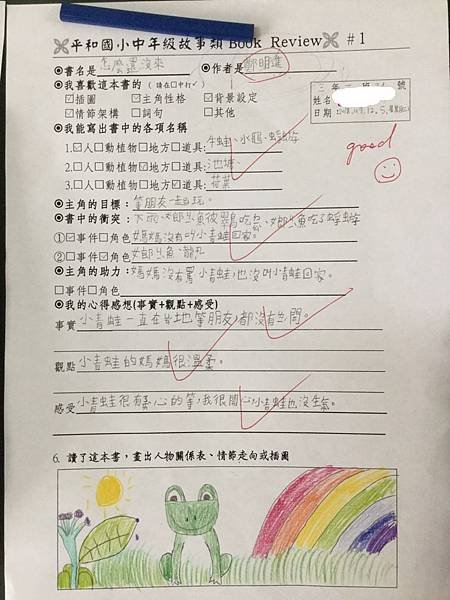 平和國小中年級故事類 Book Review #1
◉書名是 怎麼還沒來 ◉作者是 鄭明進
◉我喜歡這本書的 (請在□中打✓)
☑插圖 ☑主角性格 ☑背景設定
☑情節架構 □詞句 □其他
三年 班 號
姓名
日期
good
◉我能寫出書中的各項名稱
1.☑人□動植物□地方□道具: 牛蛙、水黽、蜉蝣
2.□人□動植物☑地方□道具: 池塘、
3.□人□動植物□地方☑道具: 荷葉
◉主角的目標: 等朋友一起玩。
◉書中的衝突:
①☑事件□角色 媽媽沒有叫小青蛙回家。
②□事件☑角色
◉主角的助力: 媽媽沒有罵小青蛙,也沒叫小青蛙回家。
□事件□角色
◉我的心得感想(事實+觀點+感受)
事實 小青蛙一直在 地等朋友,都沒有
觀點 小青蛙的媽媽很溫柔。
感受 小青蛙很有 心的等,我很開心小青蛙也沒生氣。
6. 讀了這本書,畫出人物關係表、情節走向或插圖